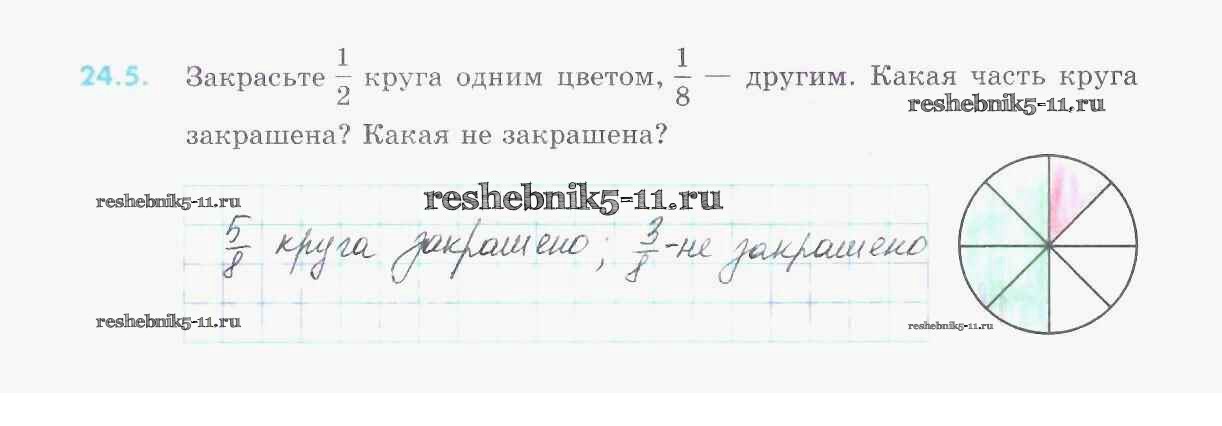 24.5. Закрасьте 1/2 круга одним цветом, 1/8 — другим. Какая часть круга
reshebnik5-11.ru
закрашена? Какая не закрашена?
reshebnik5-11.ru
reshebnik5-11.ru
5/8 круга закрашено; 3/8 - не закрашено
reshebnik5-11.ru
reshebnik5-11.ru